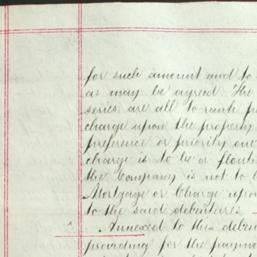 for such amount and to
as may be agreed The
series are all to rank
charge upon the property
preference or priority
charge is to be a
the Company is not to
Mortgage or Charge upon
to the said debentures
Annexed to this
providing for the